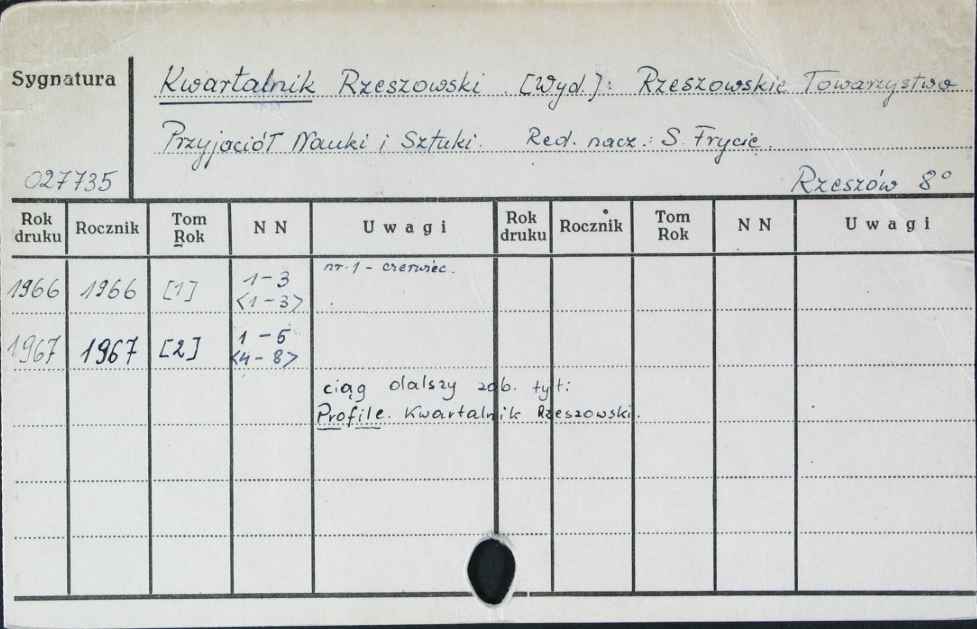 Sygnatura
Kwartalnik Rzeszowski [Wyd.]: Rzeszowskie Towarzystwo
Przyjaciół Nauki i Sztuki. Red. nacz.: S. Frycie.
027735
Rzeszów 8°
Rok druku Rocznik Tom Rok N N Uwagi Rok druku Rocznik Tom Rok N N Uwagi
nr. 1 - czerwiec.
1966 1966 [1] 1-3
<1-3>
1967 1967 [2] 1-5
<4-8>
ciąg dalszy zob. tyt:
Profile. Kwartalnik Rzeszowski.